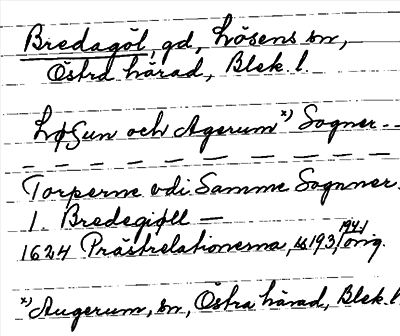 Bredagöl, gd, Lösens sn,
Östra härad, Blek. l.
Løsun och Agerum x) Sogner - -
Torperne vdi Samme Sognner.
1. Bredegiøll —
1624 Prästrelationerna, s 193, orig.
x) Augerum, sn, Östra härad, Blek. l.